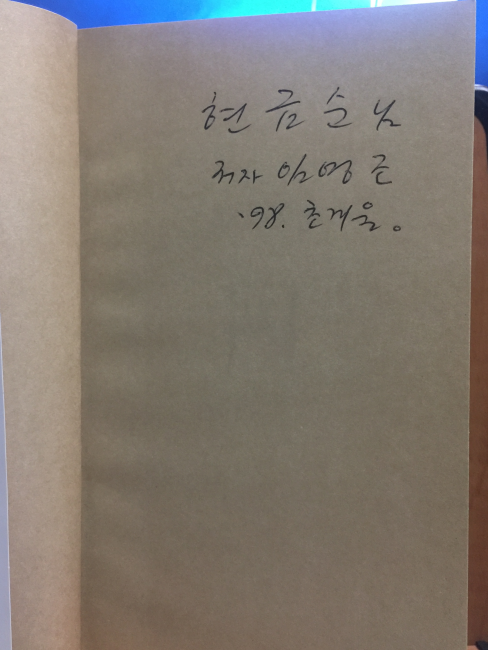 현금순님
저자 임영준
'98. 초겨울。